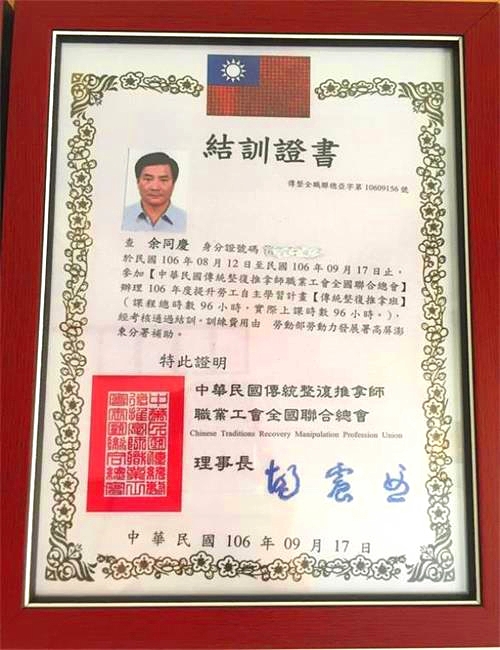 結訓證書
傳整全職聯總亞字第10609156號
查 余同慶 身分證號碼
於民國106年08月12日至民國106年09月17日止，
參加【中華民國傳統整復推拿師職業工會全國聯合總會】
辦理106年度提升勞工自主學習計畫【傳統整復推拿班】
（課程總時數96小時，實際上課時數96小時。），
經考核通過結訓。訓練費用由 勞動部勞動力發展署高屏澎
東分署補助。
特此證明
中華民國傳統整復推拿師
職業工會全國聯合總會
Chinese Traditions Recovery Manipulation Profession Union
理事長
中華民國106年09月17日